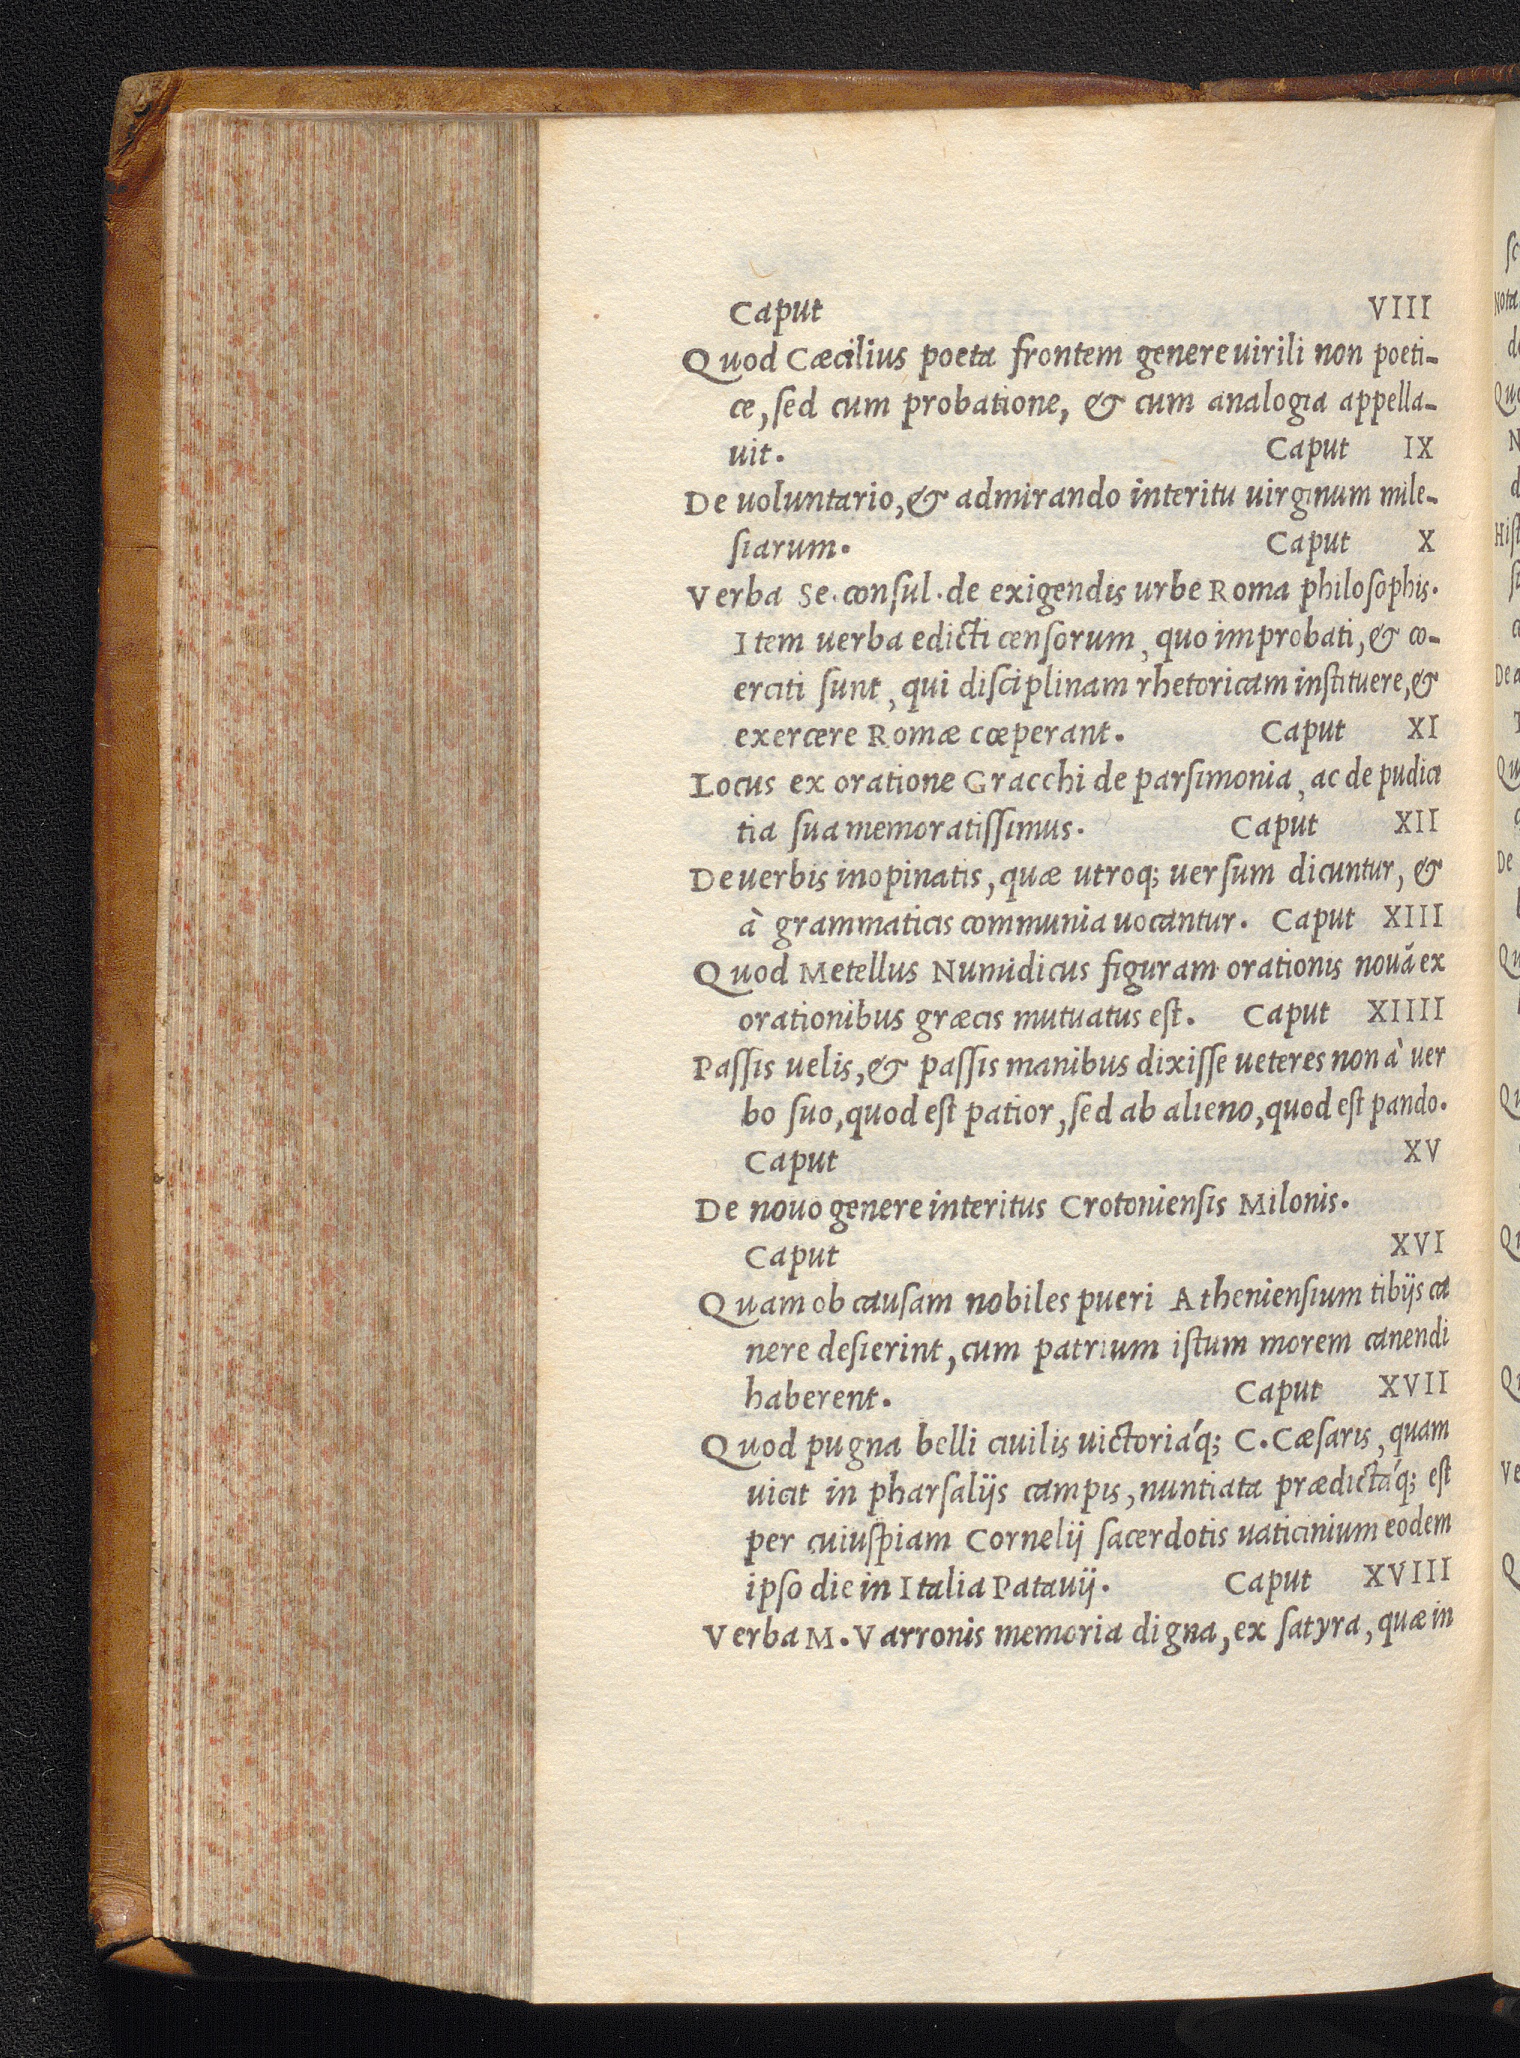 Caput VIII
Quod Cæcilius poeta frontem genere uirili non poeti-
ce, sed cum probatione, & cum analogia appella-
uit. Caput IX
De uoluntario, & admirando interitu uirginum mile-
siarum. Caput X
Verba Se. consul. de exigendis urbe Roma philosophis.
Item uerba edicti censorum, quo improbati, & co-
erciti sunt, qui disciplinam rhetoricam instituere, &
exercere Romæ cœperant. Caput XI
Locus ex oratione Gracchi de parsimonia, ac de pudici
tia sua memoratissimus. Caput XII
De uerbis inopinatis, quæ utroq; uersum dicuntur, &
à grammaticis communia uocantur. Caput XIII
Quod Metellus Numidicus figuram orationis nouā ex
orationibus græcis mutuatus est. Caput XIIII
Passis uelis, & passis manibus dixisse ueteres non à uer
bo suo, quod est patior, sed ab alieno, quod est pando.
Caput XV
De nouo genere interitus Crotoniensis Milonis.
Caput XVI
Quam ob causam nobiles pueri Atheniensium tibijs ca
nere desierint, cum patrium istum morem canendi
haberent. Caput XVII
Quod pugna belli ciuilis uictoriáq; C. Cæsaris, quam
uicit in pharsalijs campis, nuntiata prædictáq; est
per cuiuspiam Cornelij sacerdotis uaticinium eodem
ipso die in Italia Patauij. Caput XVIII
Verba M. Varronis memoria digna, ex satyra, quæ in